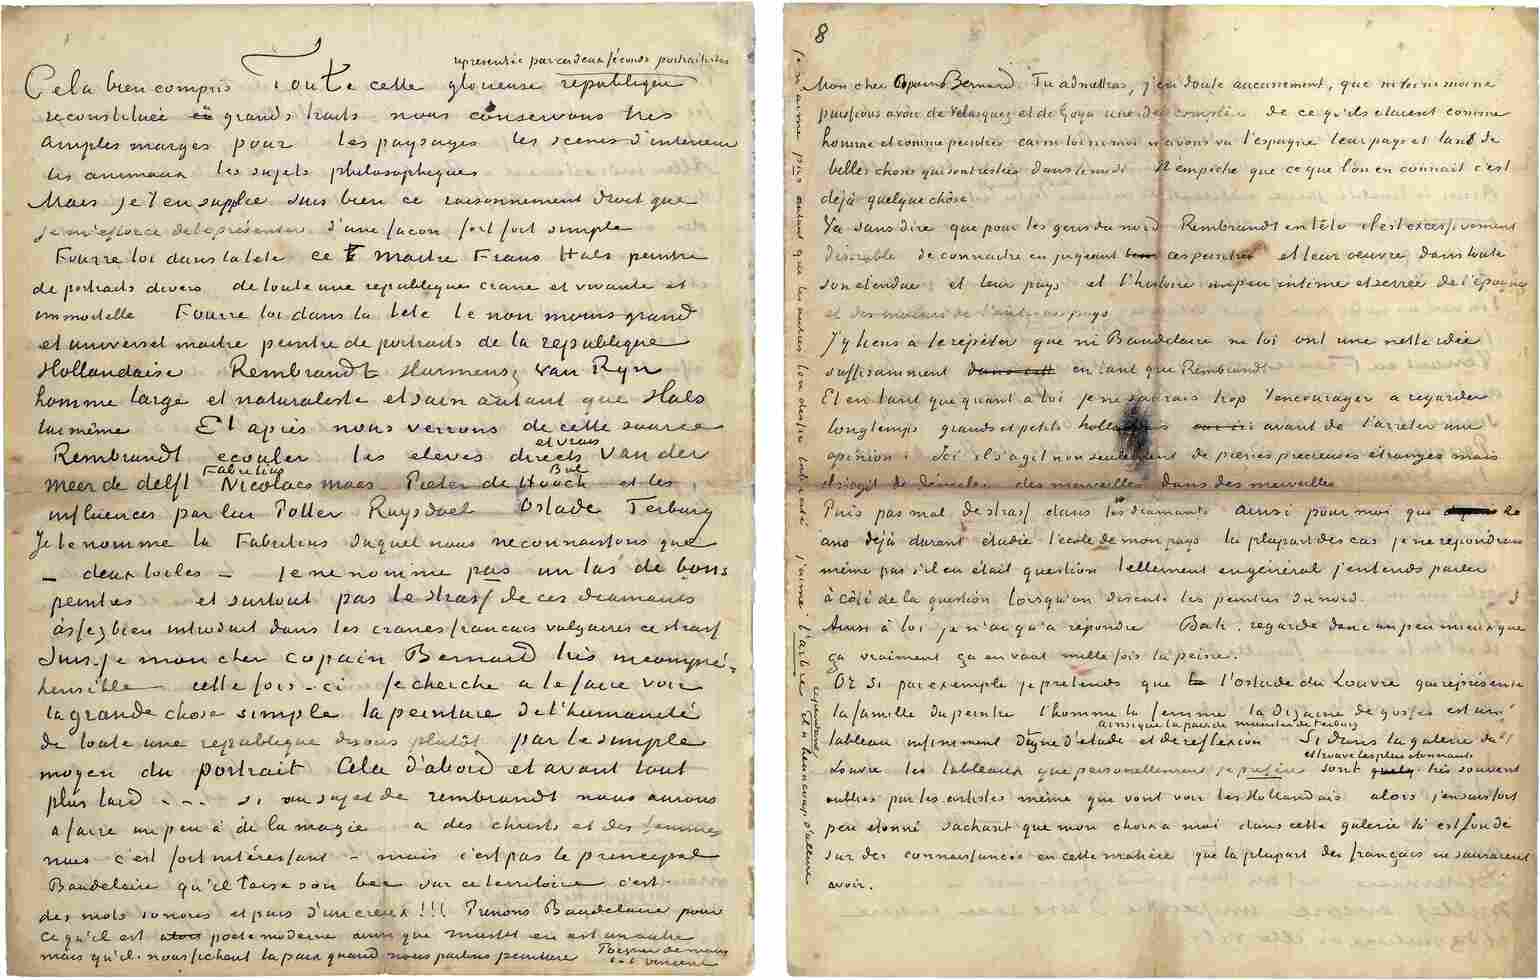 représentée par ces deux féconds portraitistes
Cela bien compris Toute cette glorieuse république
reconstituée en grands traits nous conservons très
amples marges pour les paysages les scènes d'intérieur
les animaux les sujets philosophiques
Mais je t'en supplie suis bien ce raisonnement droit que
je m'efforce de te présenter d'une façon fort fort simple
Fourre toi dans la tête ce maitre Frans Hals peintre
de portraits divers de toute une republique crane et vivante et
immortelle Fourre toi dans la tete le non moins grand
et universel maitre peintre de portraits de la republique
Hollandaise Rembrandt Harmensz van Ryn
homme large et naturaliste et sain autant que Hals
lui même Et après nous verrons de cette source
et vrais
Rembrandt ecouler les eleves directs Van der
Fabritius Bol
meer de delft Nicolaes maes Pieter de Hooch et les
influencés par lui Potter Ruysdael Ostade Terburg
Je te nomme là Fabritius duquel nous ne connaissons que
– deux toiles – je ne nomme pas un tas de bons
peintres et surtout pas le strass de ces diamants
assez bien introduit dans les cranes francais vulgaires ce strass
Suis-je mon cher copain Bernard très incompré-
hensible cette fois-ci je cherche a te faire voir
la grande chose simple la peinture de l'humanité
de toute une republique disons plutôt par le simple
moyen du portrait Cela d'abord et avant tout
plus tard - - - si au sujet de rembrandt nous aurons
a faire un peu à de la magie a des christs et des femmes
nues c'est fort intéressant – mais c'est pas le principal
Baudelaire qu'il taise son bec sur ce territoire c'est
des mots sonores et puis d'un creux !!! Prenons Baudelaire pour
ce qu'il est poète moderne ainsi que Musset en est un autre
mais qu'ils nous fichent la paix quand nous parlons peinture
Poignee de main
t. à t. Vincent
8
Mon cher copain Bernard Tu admettras, j'en doute aucunement, que ni toi ni moi ne
puissions avoir de Velasquez et de Goya une idée complète de ce qu'ils étaient comme
homme et comme peintres car ni toi ni moi n'avons vu l'espagne leur pays et tant de
belles choses qui sont restées dans le midi N'empêche que ce que l'on en connait c'est
déjà quelque chôse
Va sans dire que pour les gens du nord Rembrandt en tête il est excessivement
désirable de connaitre en jugeant ces peintres et leur oeuvre dans toute
son étendue et leur pays et l'histoire un peu intime et serrée de l'époque
et des moeurs de l'antique pays
J'y tiens à te répéter que ni Baudelaire ni toi ont une nette idée
suffisamment en tant que Rembrandt
Et en tant que quant à toi je ne saurais trop t'encourager a regarder
longtemps grands et petits hollandais avant de t'arrêter une
opinion : Ici il s'agit non seulement de pierres précieuses étranges mais
il s'agit de démêler des merveilles dans des merveilles
Puis pas mal de strass dans les diamants ainsi pour moi que 20
ans déjà durant étudie l'école de mon pays la plupart des cas je ne répondrai
même pas s'il en était question tellement en général j'entends parler
à côté de la question lorsqu'on discute les peintres du nord.
Ainsi à toi je n'ai qu'a répondre Bah. regarde donc un peu mieux que
ça vraiment ça en vaut mille fois la peine.
Or si par exemple je prétends que l'ostade du Louvre qui représente
la famille du peintre l'homme la femme la dizaine de gosses est un
ainsi que la paix de munster de Terburg
tableau infiniment digne d'étude et de reflexion Si dans la galerie du
et trouve les plus étonnants
Louvre les tableaux que personellement je préfère sont très souvent
oubliés par les artistes même que vont voir les Hollandais alors j'en suis fort
peu étonné sachant que mon choix a moi dans cette galerie là est fondé
sur des connaissances en cette matière que la plupart des français ne sauraient
avoir.